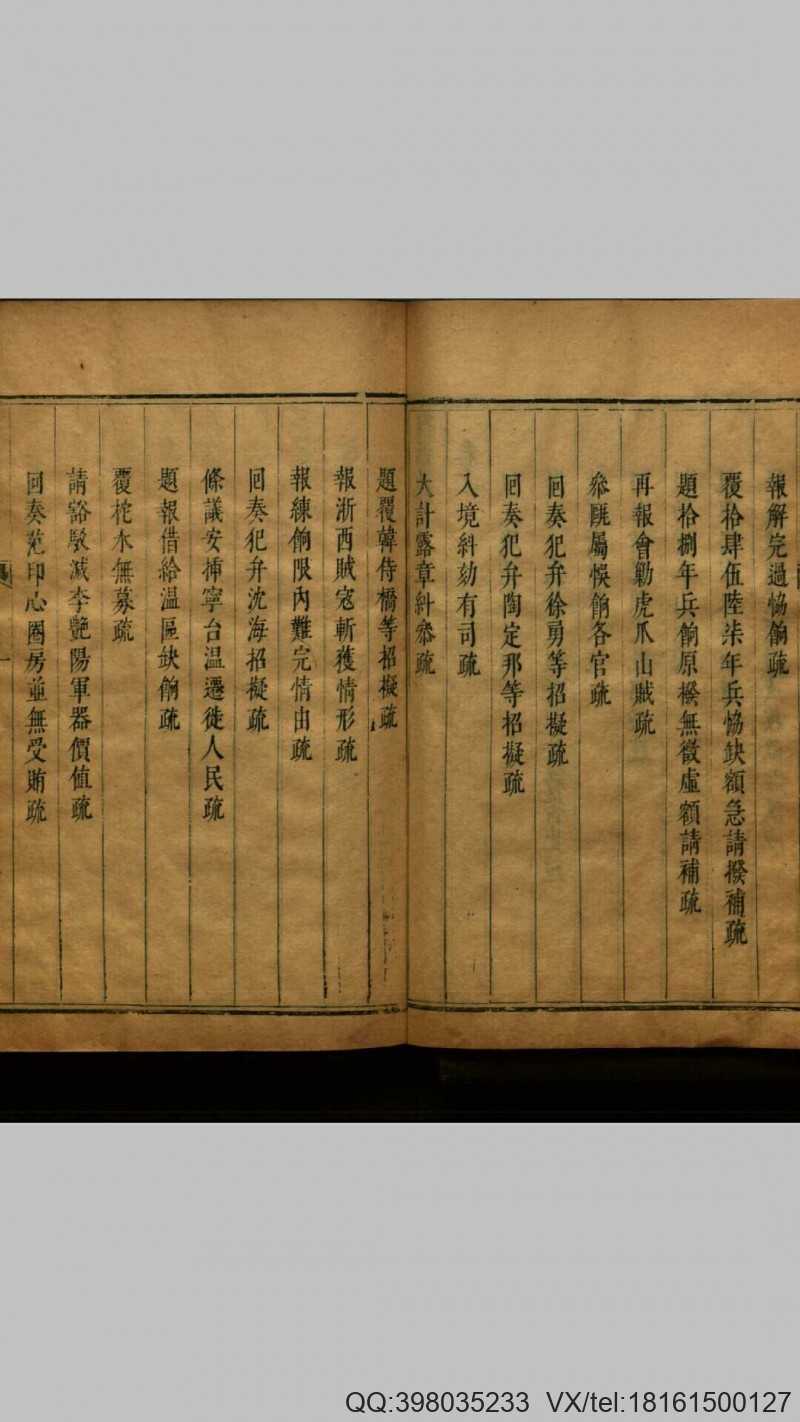 報解完過恊餉疏
覆拾肆伍陸柒年兵恊缺額急請撥補疏
題拾捌年兵餉原撥無徵虛額請補疏
再報會勦虎爪山賊疏
叅毗屬悞餉各官疏
回奏犯弁徐勇等招擬疏
回奏犯弁陶定邦等招擬疏
入境糾劾有司疏
大計露章糾叅疏
題覆韓侍橋等招擬疏
報浙西賊寇斬獲情形疏
報練餉限內難完情由疏
回奏犯弁沈海招擬疏
條議安揷寧台温遷徙人民疏
題報借給温區缺餉疏
覆柁水無募疏
請豁駁減李艷陽軍器價值疏
回奏范印心圈房並無受賄疏
一
QQ:398035233 VX/tel:18161500127